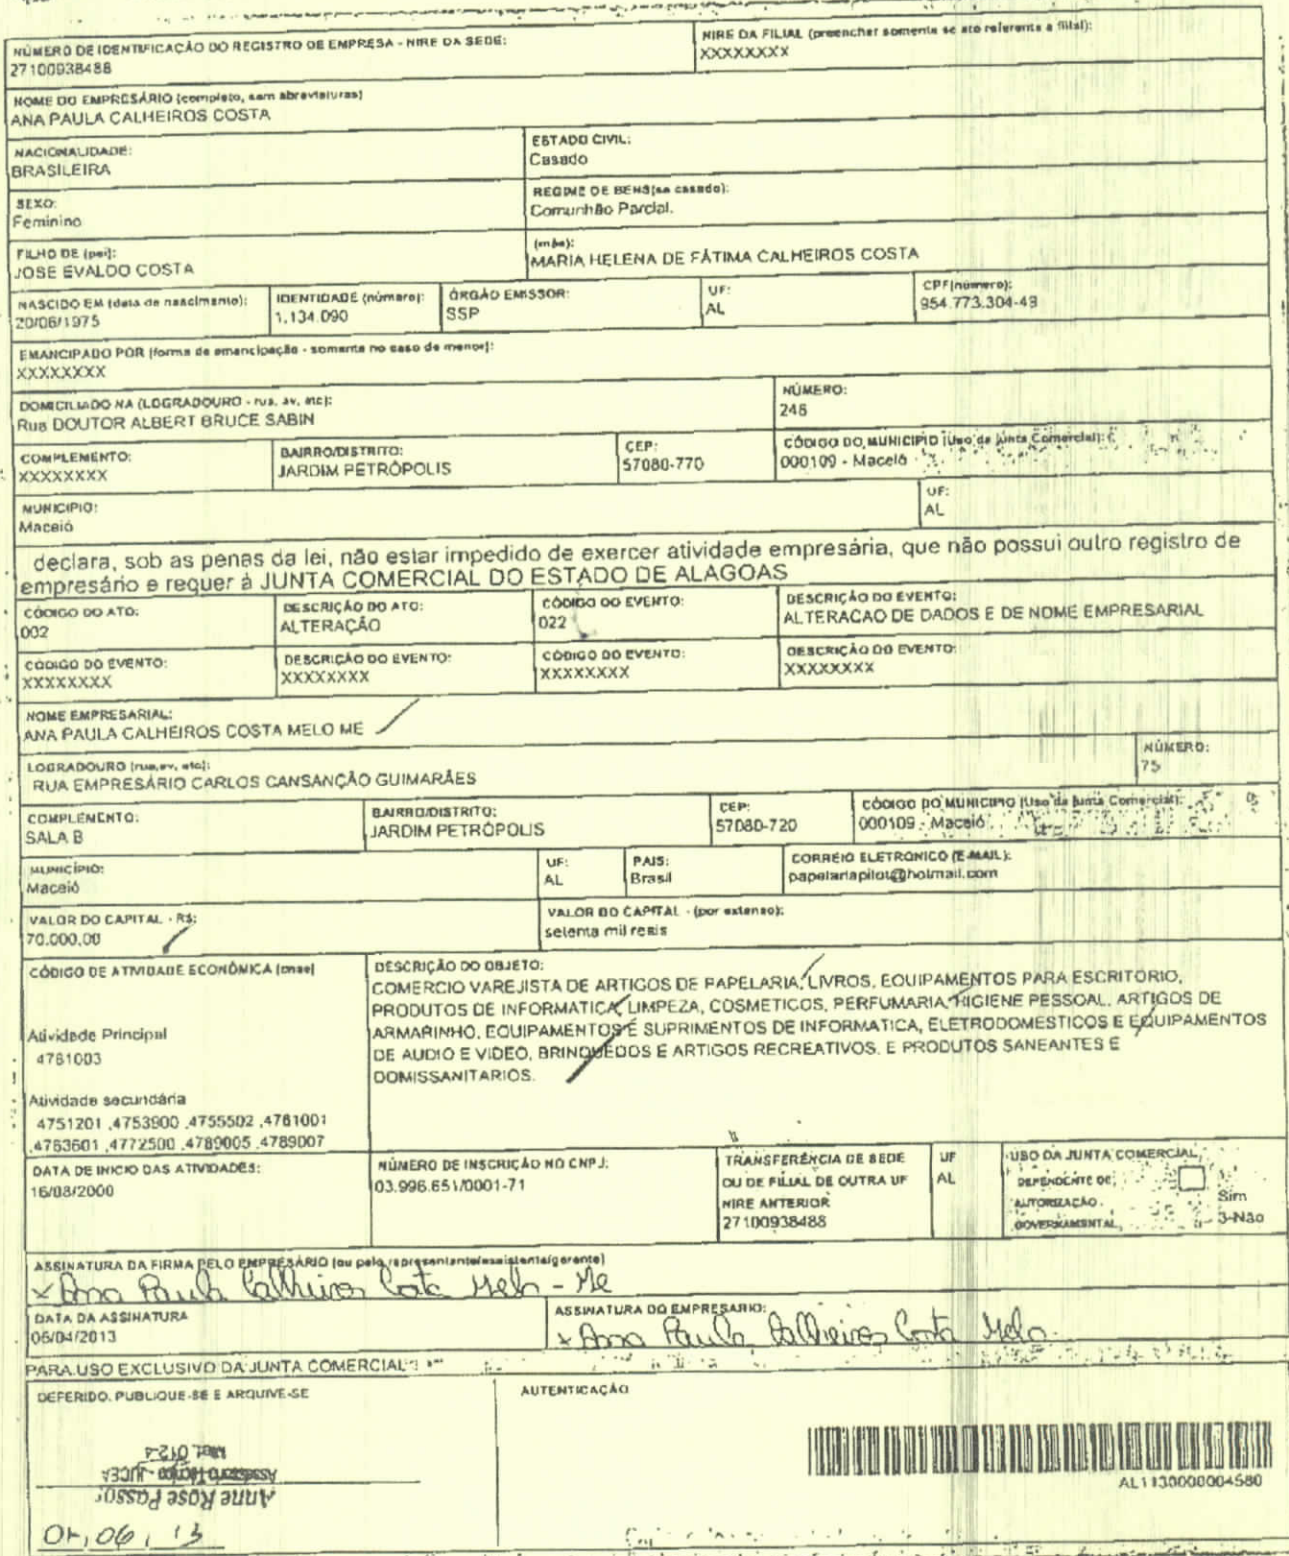 NÚMERO DE IDENTIFICAÇÃO DO REGISTRO DE EMPRESA - NIRE DA SEDE:
27100938488
NIRE DA FILIAL (preencher somente se ato referente a filial):
XXXXXXXX
NOME DO EMPRESÁRIO (completo, sem abreviaturas)
ANA PAULA CALHEIROS COSTA
NACIONALIDADE:
BRASILEIRA
ESTADO CIVIL:
Casado
SEXO:
Feminino
REGIME DE BENS(se casado):
Comunhão Parcial.
FILHO DE (pai):
JOSE EVALDO COSTA
(mãe):
MARIA HELENA DE FÁTIMA CALHEIROS COSTA
NASCIDO EM (data de nascimento):
20/06/1975
IDENTIDADE (número):
1.134.090
ÓRGÃO EMISSOR:
SSP
UF:
AL
CPF(número):
954.773.304-49
EMANCIPADO POR (forma de emancipação - somente no caso de menor):
XXXXXXXX
DOMICILIADO NA (LOGRADOURO - rua, av, etc):
Rua DOUTOR ALBERT BRUCE SABIN
NÚMERO:
246
COMPLEMENTO:
XXXXXXXX
BAIRRO/DISTRITO:
JARDIM PETRÓPOLIS
CEP:
57080-770
CÓDIGO DO MUNICIPIO (Uso da Junta Comercial):
000109 - Maceió
MUNICIPIO:
Maceió
UF:
AL
declara, sob as penas da lei, não estar impedido de exercer atividade empresária, que não possui outro registro de
empresário e requer à JUNTA COMERCIAL DO ESTADO DE ALAGOAS
CÓDIGO DO ATO:
002
DESCRIÇÃO DO ATO:
ALTERAÇÃO
CÓDIGO DO EVENTO:
022
DESCRIÇÃO DO EVENTO:
ALTERACAO DE DADOS E DE NOME EMPRESARIAL
CÓDIGO DO EVENTO:
XXXXXXXX
DESCRIÇÃO DO EVENTO:
XXXXXXXX
CÓDIGO DO EVENTO:
XXXXXXXX
DESCRIÇÃO DO EVENTO:
XXXXXXXX
NOME EMPRESARIAL:
ANA PAULA CALHEIROS COSTA MELO ME
LOGRADOURO (rua,av, etc):
RUA EMPRESÁRIO CARLOS CANSANÇÃO GUIMARÃES
NÚMERO:
75
COMPLEMENTO:
SALA B
BAIRRO/DISTRITO:
JARDIM PETRÓPOLIS
CEP:
57080-720
CÓDIGO DO MUNICIPIO (Uso da Junta Comercial):
000109 - Maceió
MUNICÍPIO:
Maceió
UF:
AL
PAIS:
Brasil
CORREIO ELETRONICO (E-MAIL):
papelariapilot@hotmail.com
VALOR DO CAPITAL - R$:
70.000,00
VALOR DO CAPITAL - (por extenso):
setenta mil reais
CÓDIGO DE ATIVIDADE ECONÔMICA (cnae)
Atividade Principal
4761003
Atividade secundária
4751201 ,4753900 ,4755502 ,4761001
,4763601 ,4772500 ,4789005 ,4789007
DESCRIÇÃO DO OBJETO:
COMERCIO VAREJISTA DE ARTIGOS DE PAPELARIA, LIVROS, EQUIPAMENTOS PARA ESCRITORIO,
PRODUTOS DE INFORMATICA, LIMPEZA, COSMETICOS, PERFUMARIA, HIGIENE PESSOAL, ARTIGOS DE
ARMARINHO, EQUIPAMENTOS E SUPRIMENTOS DE INFORMATICA, ELETRODOMESTICOS E EQUIPAMENTOS
DE AUDIO E VIDEO, BRINQUEDOS E ARTIGOS RECREATIVOS. E PRODUTOS SANEANTES E
DOMISSANITARIOS.
DATA DE INICIO DAS ATIVIDADES:
16/08/2000
NÚMERO DE INSCRIÇÃO NO CNPJ:
03.996.651/0001-71
TRANSFERÊNCIA DE SEDE
OU DE FILIAL DE OUTRA UF
NIRE ANTERIOR
27100938488
UF
AL
USO DA JUNTA COMERCIAL
DEPENDENTE DE
AUTORIZAÇÃO
GOVERNAMENTAL
Sim
3-Não
ASSINATURA DA FIRMA PELO EMPRESÁRIO (ou pelo representante/assistente/gerente)
x Ana Paula Calheiros Costa Melo - Me
DATA DA ASSINATURA
06/04/2013
ASSINATURA DO EMPRESARIO:
x Ana Paula Calheiros Costa Melo
PARA USO EXCLUSIVO DA JUNTA COMERCIAL
DEFERIDO. PUBLIQUE-SE E ARQUIVE-SE
AUTENTICAÇÃO
Anne Rose Passos
Assessora Técnica - JUCEA
Mat. 012-4
06, 13
AL1130000004580